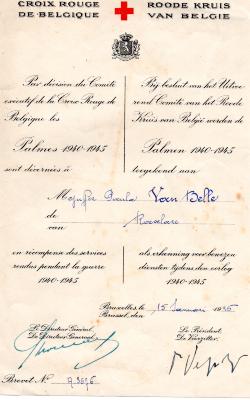 CROIX ROUGE DE BELGIQUE
ROODE KRUIS VAN BELGIE
Par décision du Comité
exécutif de la Croix Rouge de
Belgique les
Palmes 1940-1945
sont décernées à
Bij besluit van het Uitvoe
rend Comité van het Roode
Kruis van België werden de
Palmen 1940-1945
toegekend aan
Mejuffer Paula Van Belle
de
van Roeselare
en récompense des services
rendus pendant la guerre
1940-1945
als erkenning voor bewezen
diensten tijdens den oorlog
1940-1945
Bruxelles, le
Brussel, den 15 Januari
Le Directeur Général,
De Directeur Generaal,
Le Président,
De Voorzitter,
Brevet No